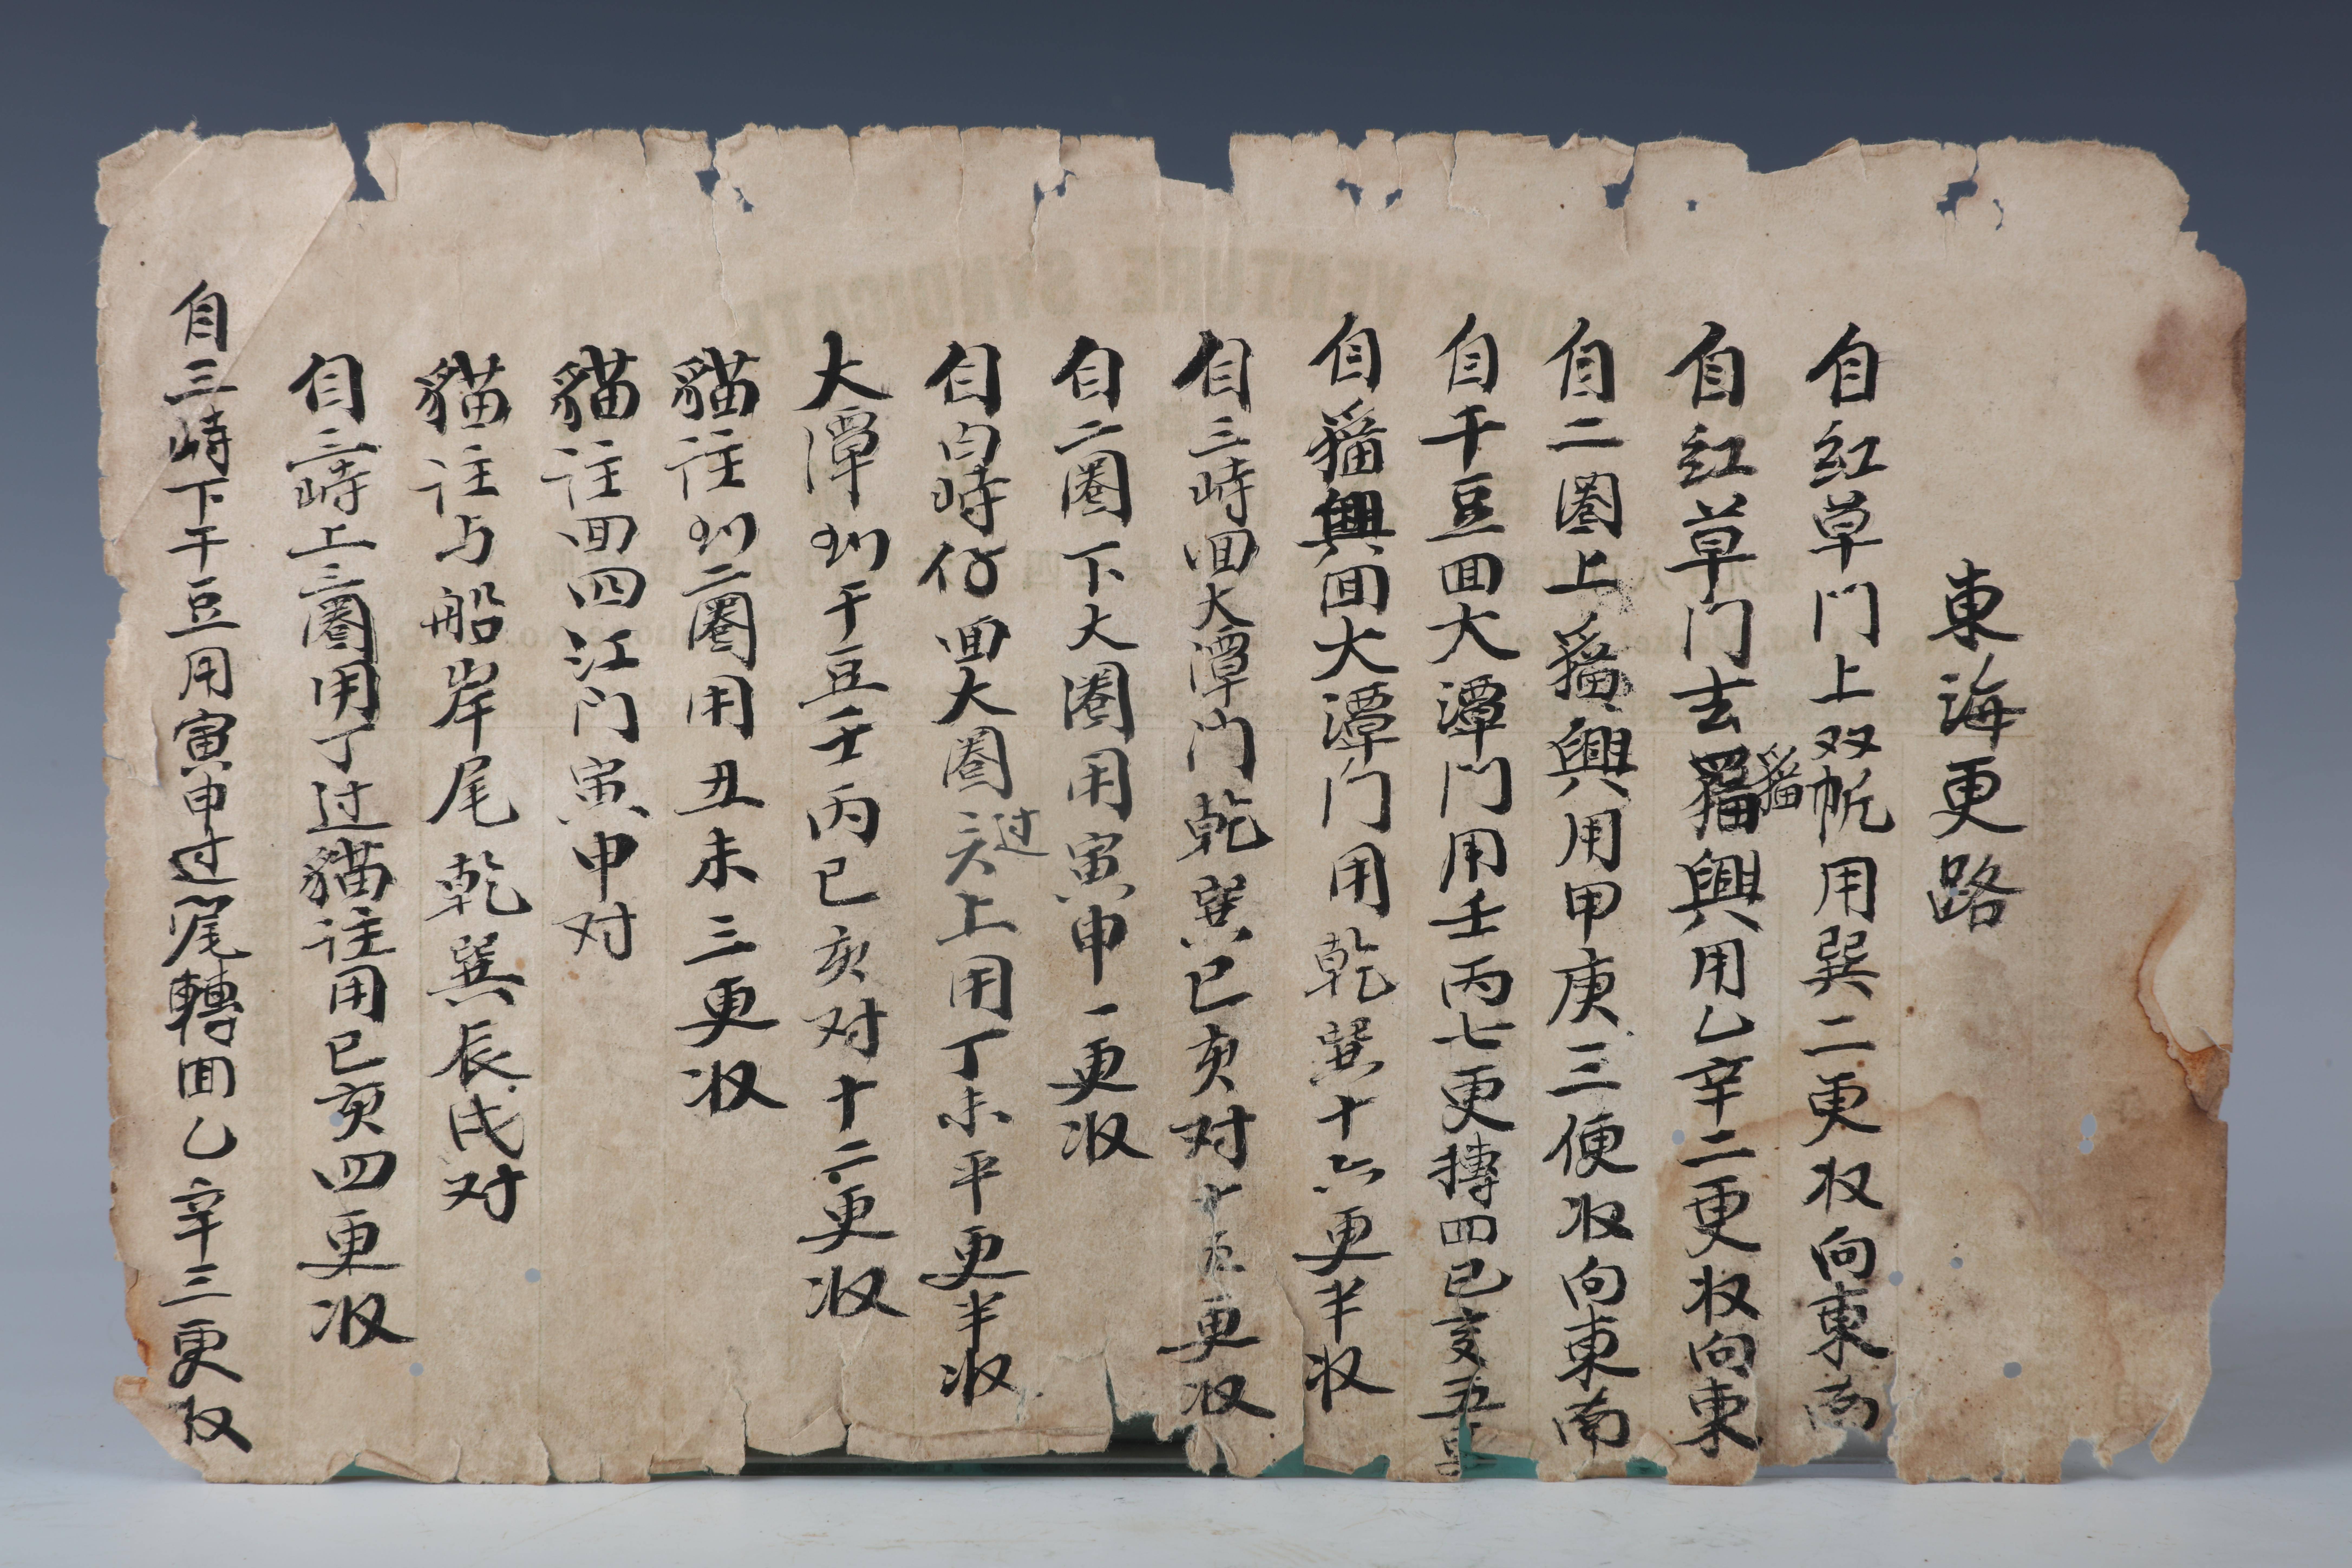 東海更路
自紅草门上双帆用巽二更收向東南
自紅草门去猫興用乙辛二更收向東
猫
自二圏上猫興用甲庚三便收向東南
自干豆回大潭门用壬丙七更摶四巳亥五更
自猫興回大潭门用乾巽十六更半收
自三峙回大潭门乾巽巳亥对十五更收
自二圏下大圏用寅申一更收
自白峙仔回大圏头过上用丁未平更半收
大潭到干豆壬丙巳亥对十二更收
貓註到二圏用丑未三更收
貓註回四江门寅申对
貓註与船岸尾乾巽辰戌对
自三峙上三圏用丁过貓註用巳亥四更收
自三峙下干豆用寅申过尾轉回乙辛三更收
VENTURE SYNDICATE